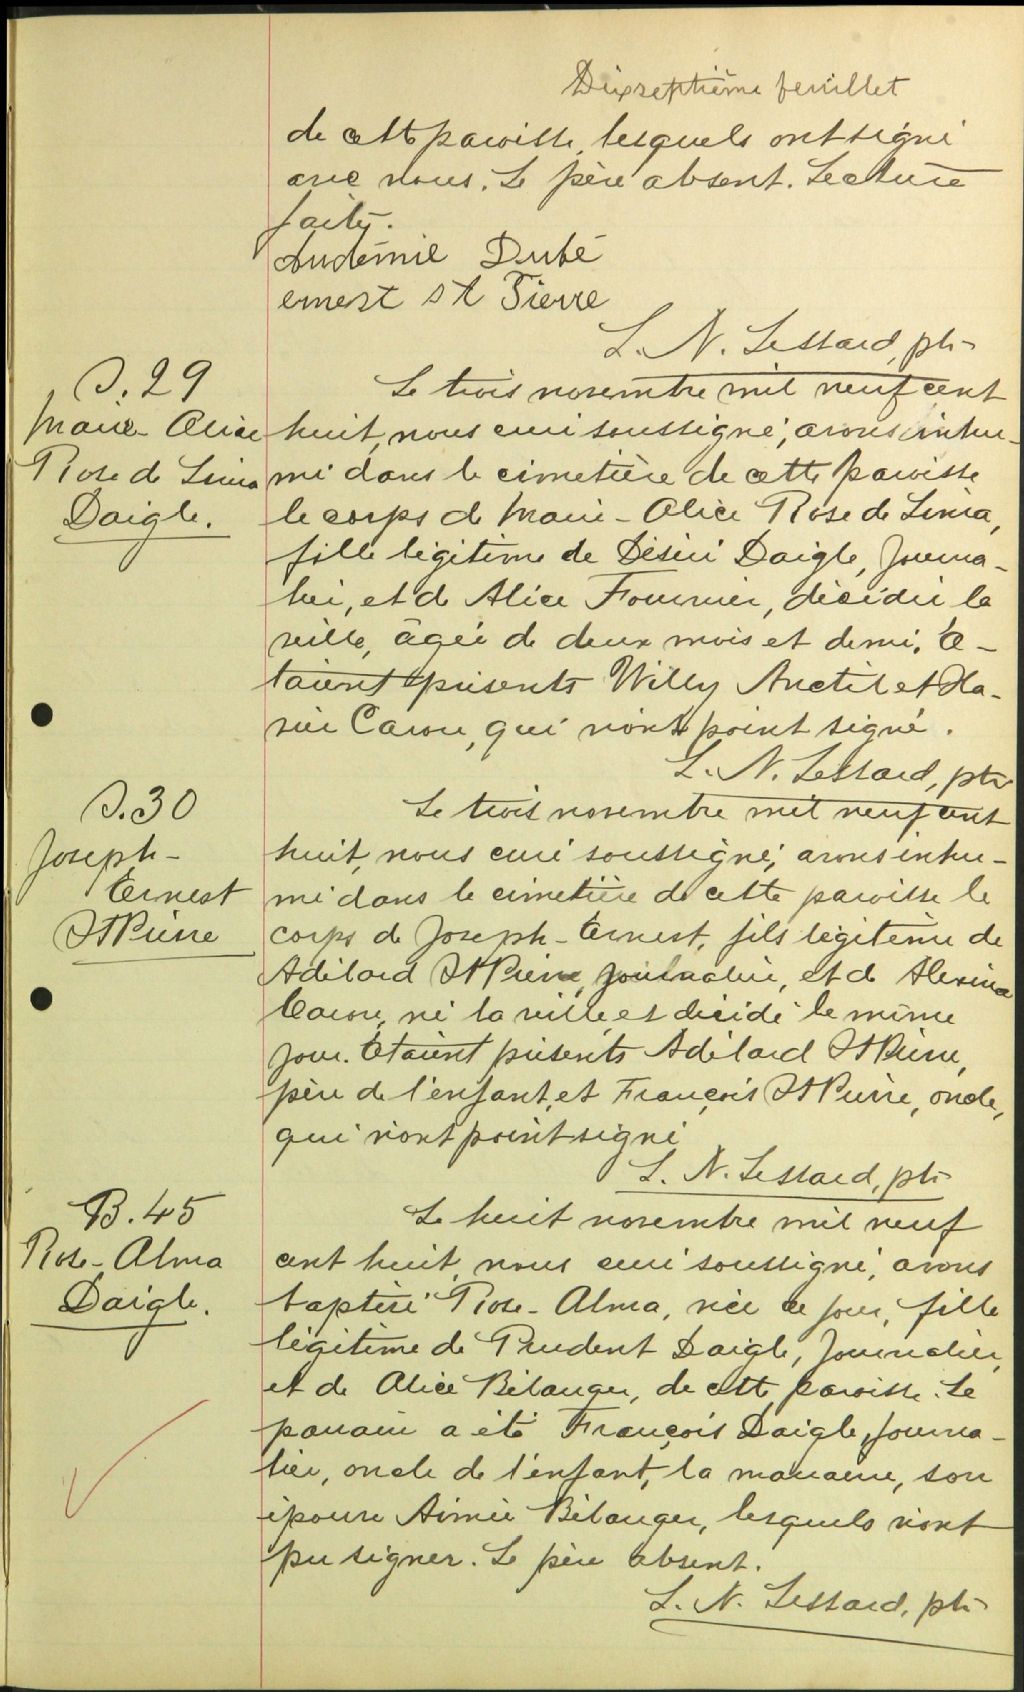 Dixseptième feuillet
de cette paroisse, lesquels ont signé
avec nous. Le père absent. Lecture
faite.
Audémie Dubé
ernest st Pierre
L. N. Lessard, ptr
S. 29
Marie-Alice
Rose de Lima
Daigle.
Le trois novembre mil neuf cent
huit, nous curé soussigné, avons inhu-
mé dans le cimetière de cette paroisse
le corps de Marie-Alice Rose de Lima,
fille légitime de Désiré Daigle, Journa-
lier, et de Alice Fournier, décédée la
veille, âgée de deux mois et demi. É-
taient présents Willy Anctil et
Caron, qui n'ont point signé.
L. N. Lessard, ptr
S. 30
Joseph-
Ernest
St Pierre
Le trois novembre mil neuf cent
huit, nous curé soussigné, avons inhu-
mé dans le cimetière de cette paroisse le
corps de Joseph-Ernest, fils légitime de
Adélard St Pierre, journalier, et de Alexina
Caron, né la veille et décédé le même
jour. Étaient présents Adélard St Pierre,
père de l'enfant, et François St Pierre, oncle,
qui n'ont point signé
L. N. Lessard, ptr
B. 45
Rose-Alma
Daigle.
Le huit novembre mil neuf
cent huit, nous curé soussigné, avons
baptisé Rose-Alma, née ce jour, fille
légitime de Prudent Daigle, Journalier,
et de Alice Bélanger, de cette paroisse. Le
parrain a été François Daigle, journa-
lier, oncle de l'enfant, la marraine, son
épouse Aimée Bélanger, lesquels n'ont
pu signer. Le père absent.
L. N. Lessard, ptr